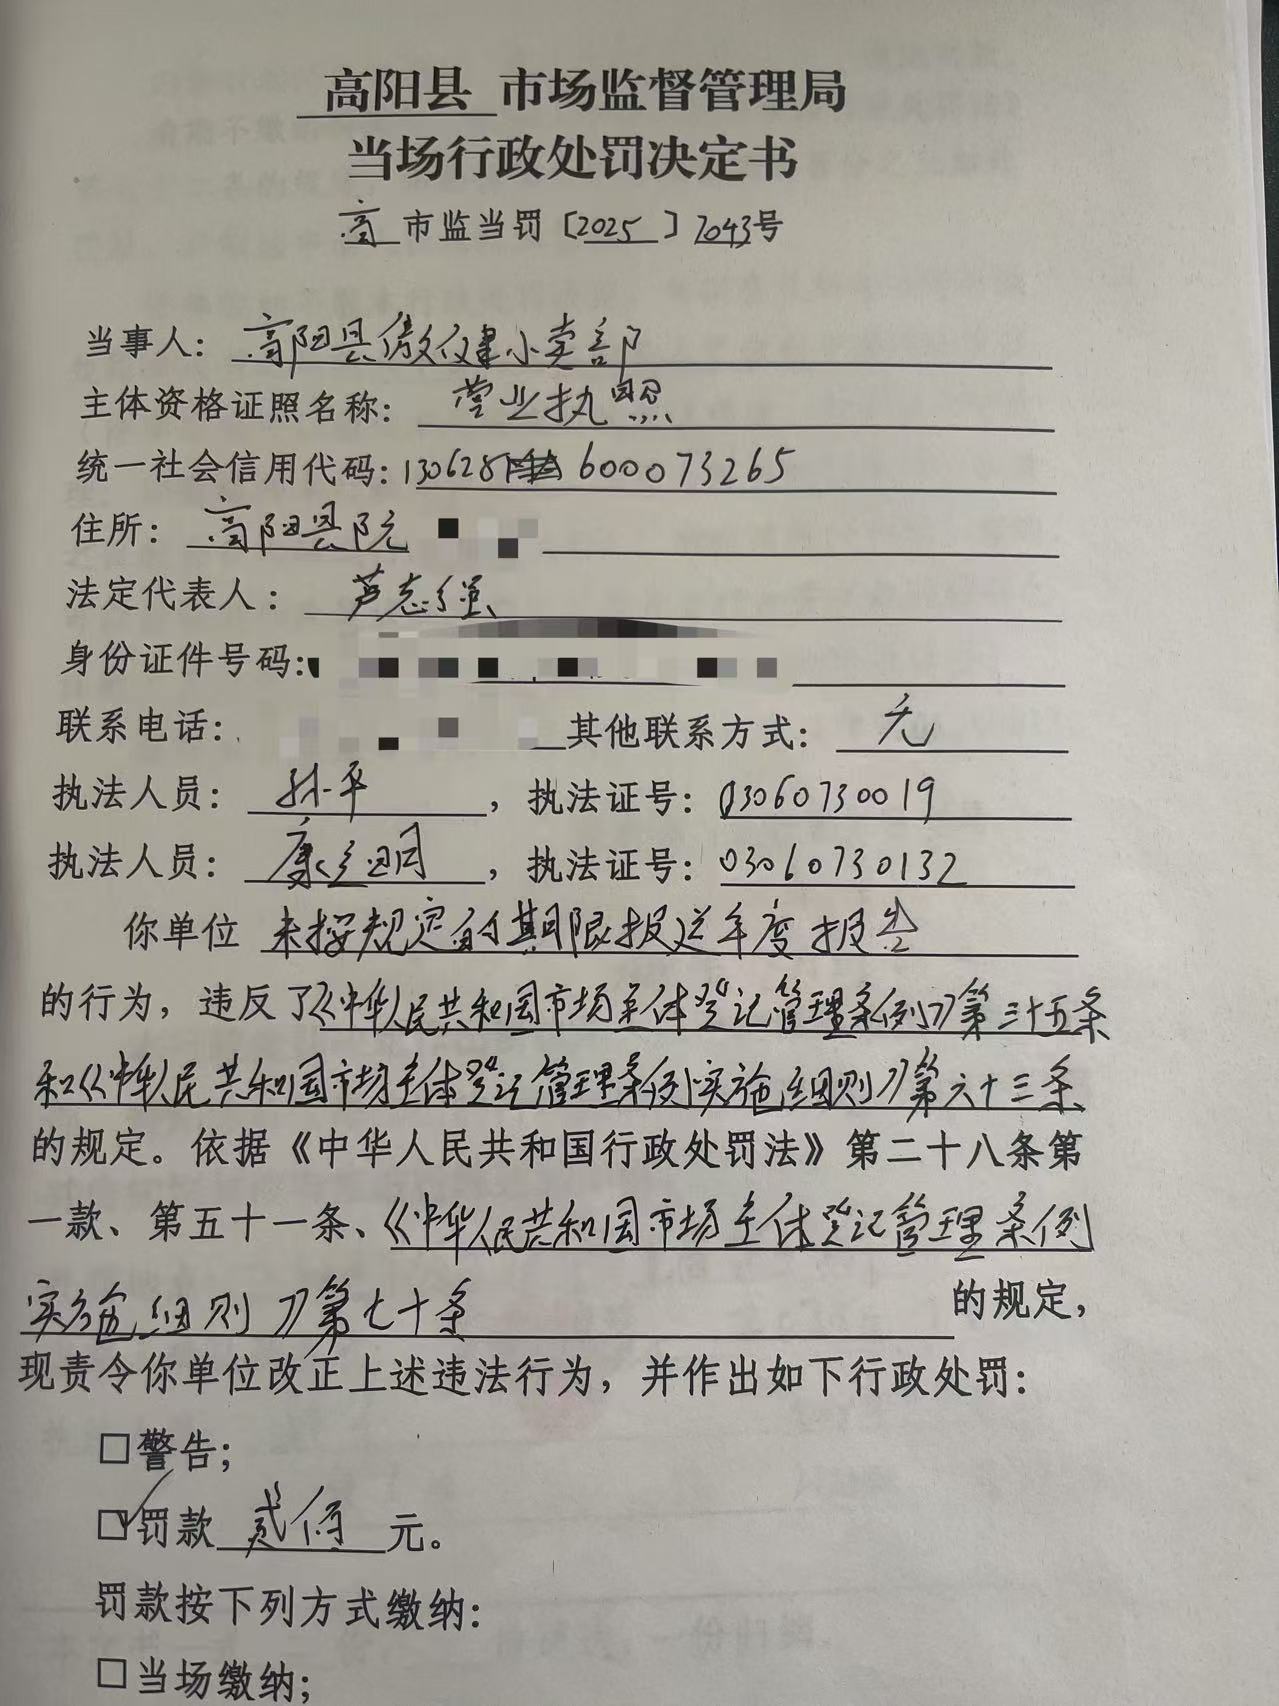 高阳县 市场监督管理局
当场行政处罚决定书
高 市监当罚〔2025〕7043号
当事人：高阳县傲健小卖部
主体资格证照名称：营业执照
统一社会信用代码：130628 600073265
住所：高阳县阮
法定代表人：芦志强
身份证件号码：
联系电话： 其他联系方式：无
执法人员：孙平，执法证号：03060730019
执法人员：康 ，执法证号：03060730132
你单位 未按规定的期限报送年度报告
的行为，违反了《中华人民共和国市场主体登记管理条例》第三十五条
和《中华人民共和国市场主体登记管理条例实施细则》第六十三条
的规定。依据《中华人民共和国行政处罚法》第二十八条第
一款、第五十一条、《中华人民共和国市场主体登记管理条例
实施细则》第七十条 的规定，
现责令你单位改正上述违法行为，并作出如下行政处罚：
□警告；
☑罚款 贰佰 元。
罚款按下列方式缴纳：
□当场缴纳；